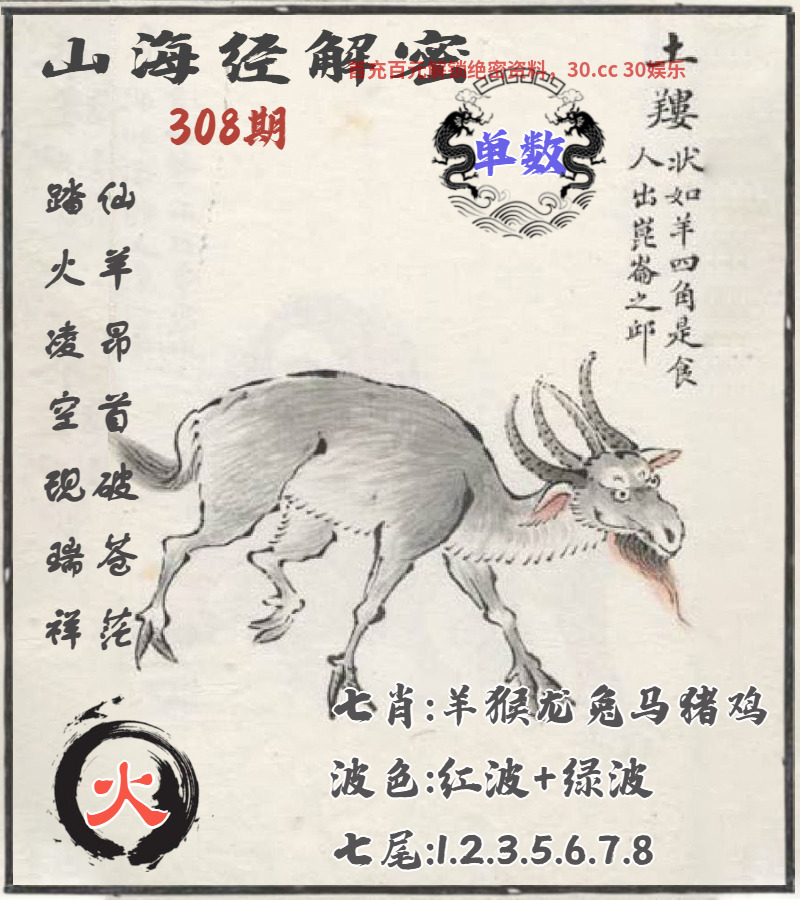 山海经解密
首充百元解锁绝密资料，30.cc 30娱乐
308期
单数
土
羬
状如羊四角是食
人出崑崙之邱
仙羊昂首破苍茫
踏火凌空现瑞祥
火
七肖:羊猴龙兔马猪鸡
波色:红波+绿波
七尾:1.2.3.5.6.7.8